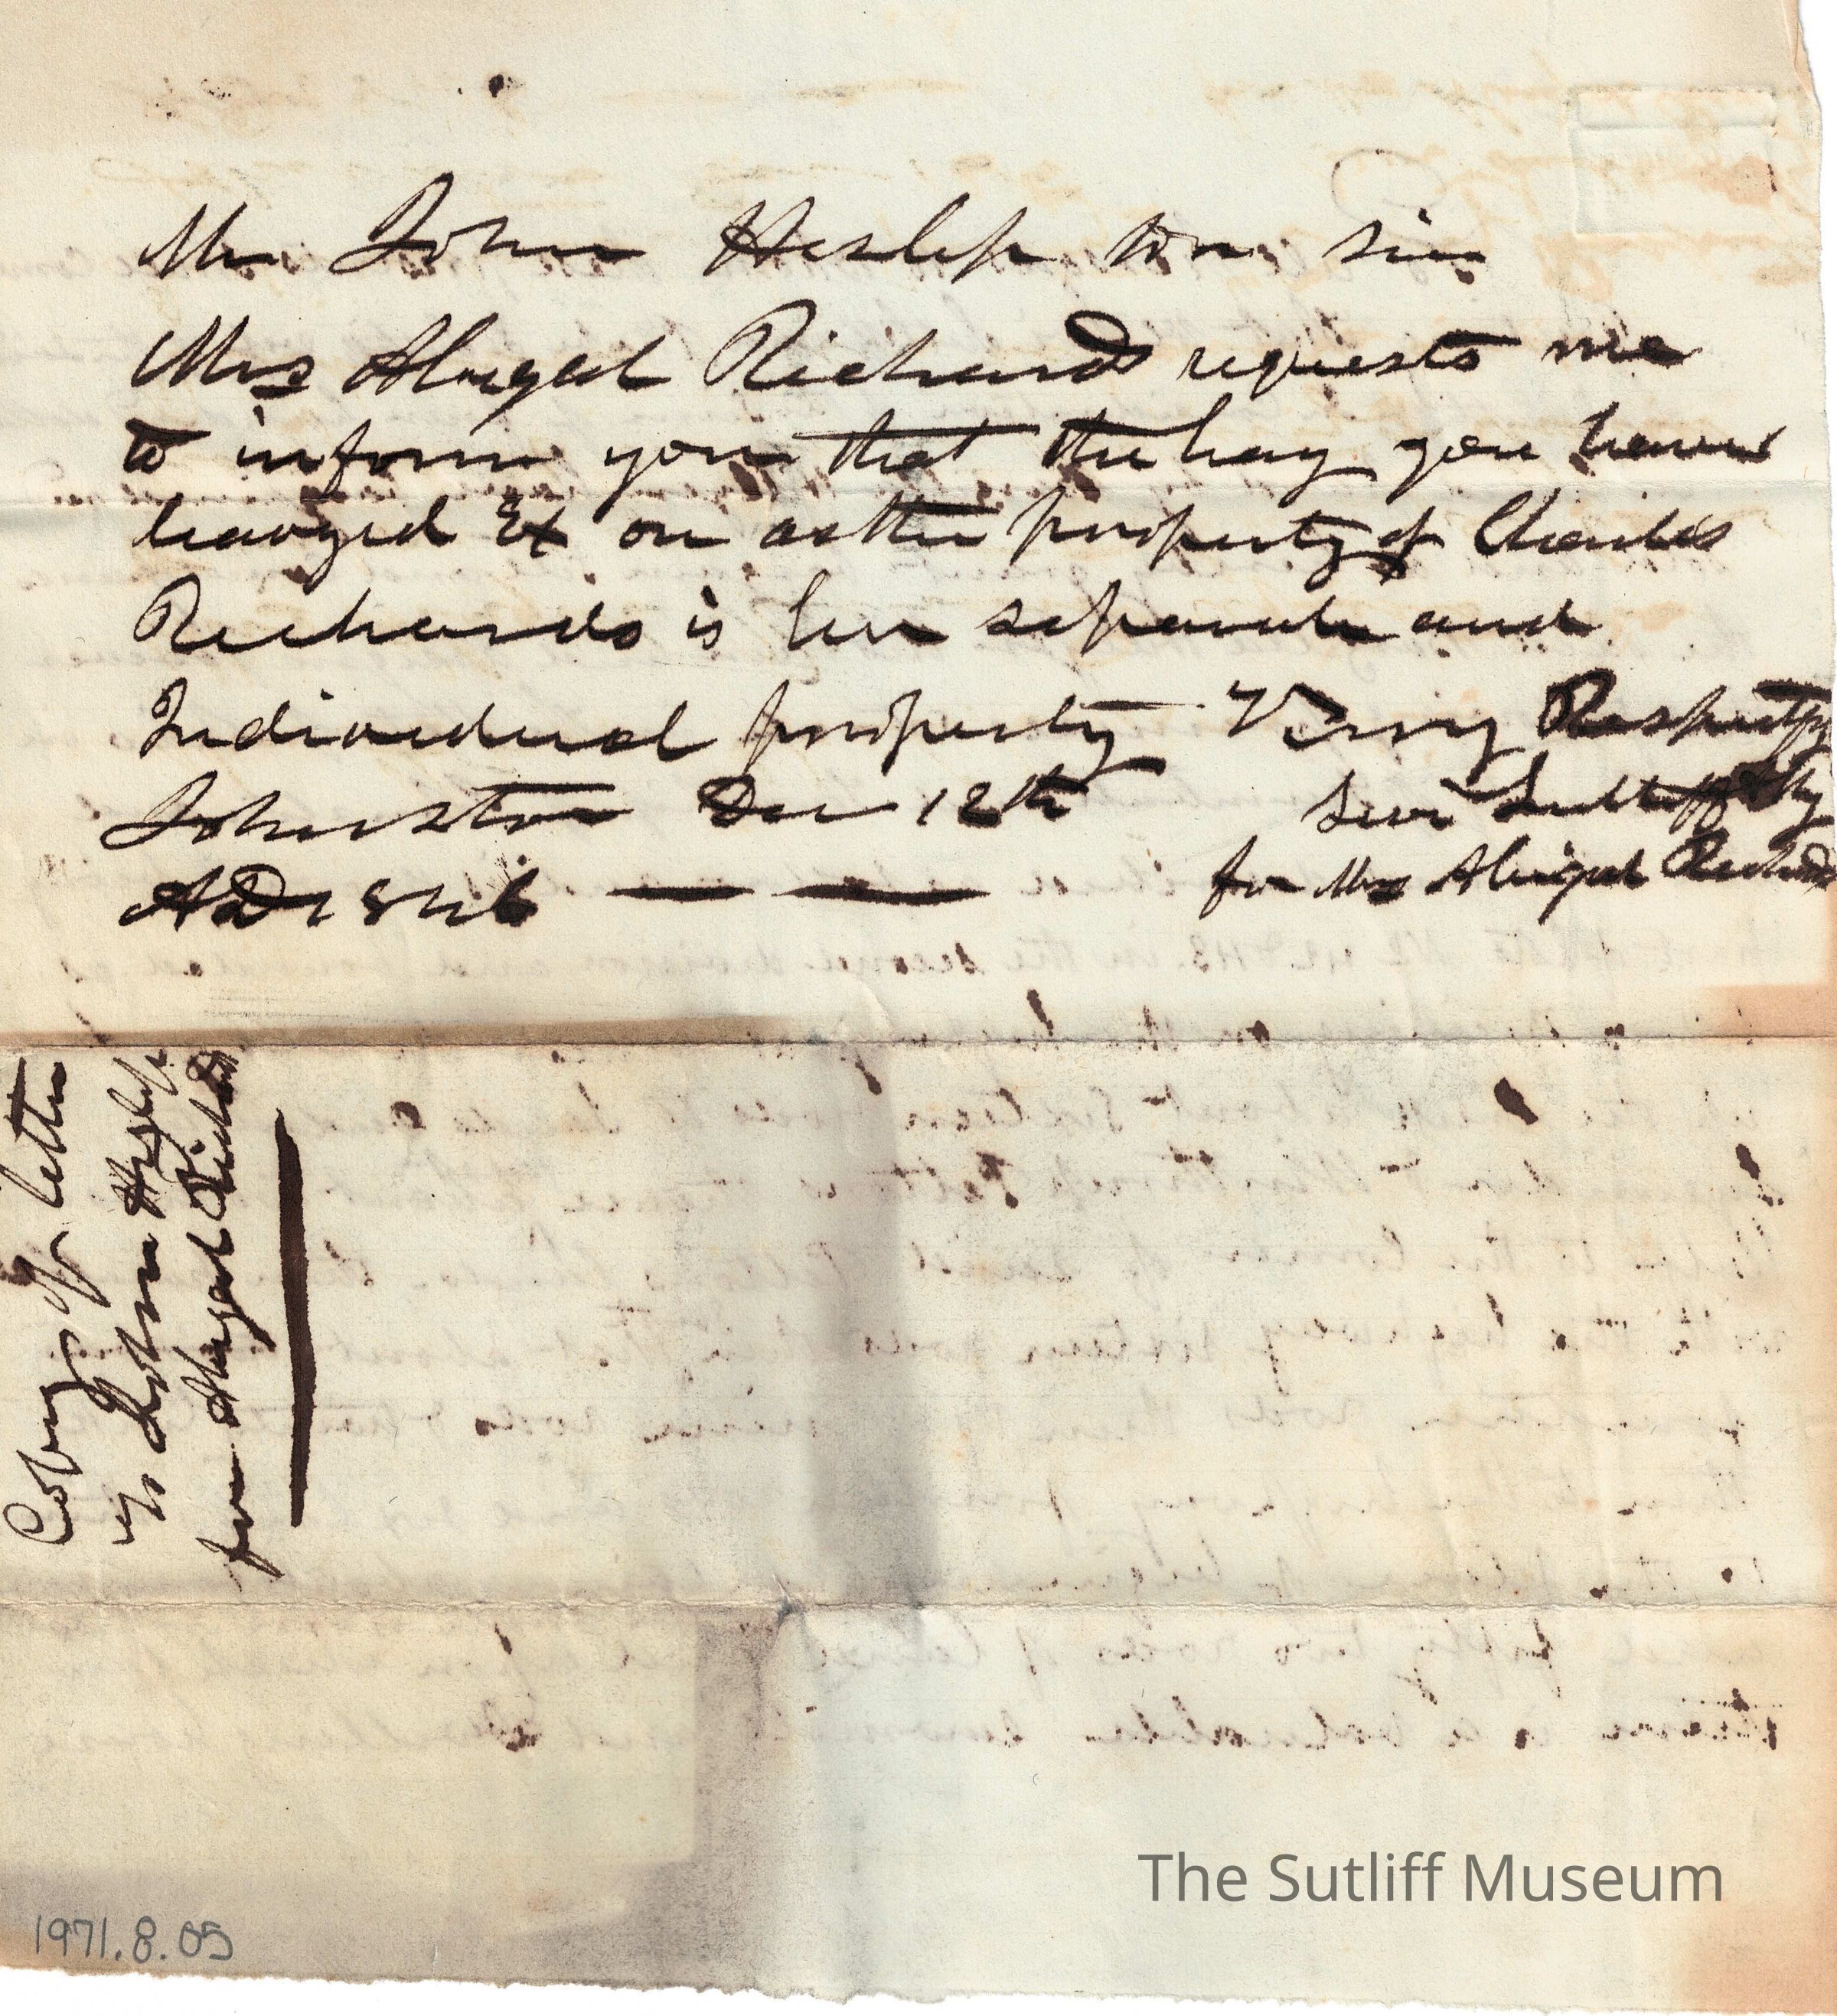 Mr John Heslip Esqr sir
Mrs Abigail Richards requests me
to inform you that the hay you have
levyed Ex on as the property of Charles
Richards is her separate and
Individual property Very Respectfy
Johnston Dec 12th Levi Sutliff Atty
AD 1846 for Mrs Abigail Richards
Copy of letter
to John Heslip
from Abigail Richards
The Sutliff Museum
1971.8.05